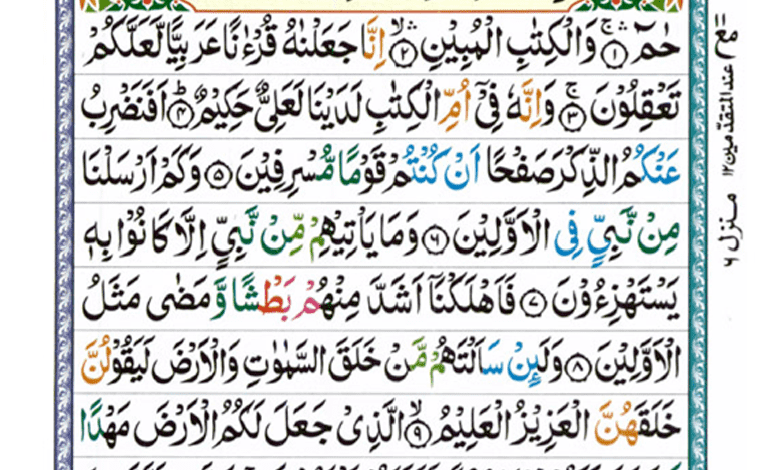 حٰمٓ ۚ﴿۱﴾ وَالۡكِتٰبِ الۡمُبِيۡنِ ۙ﴿۲﴾ اِنَّا جَعَلۡنٰهُ قُرۡءٰنًا عَرَبِيًّا لَّعَلَّكُمۡ
تَعۡقِلُوۡنَ ۚ﴿۳﴾ وَاِنَّهٗ فِىۡۤ اُمِّ الۡكِتٰبِ لَدَيۡنَا لَعَلِىٌّ حَكِيۡمٌ ؕ﴿۴﴾ اَفَنَضۡرِبُ
عَنۡكُمُ الذِّكۡرَ صَفۡحًا اَنۡ كُنۡتُمۡ قَوۡمًا مُّسۡرِفِيۡنَ ﴿۵﴾ وَكَمۡ اَرۡسَلۡنَا
مِنۡ نَّبِىٍّ فِى الۡاَوَّلِيۡنَ ﴿۶﴾ وَمَا يَاۡتِيۡهِمۡ مِّنۡ نَّبِىٍّ اِلَّا كَانُوۡا بِهٖ
يَسۡتَهۡزِءُوۡنَ ﴿۷﴾ فَاَهۡلَكۡنَاۤ اَشَدَّ مِنۡهُمۡ بَطۡشًا وَّمَضٰى مَثَلُ
الۡاَوَّلِيۡنَ ﴿۸﴾ وَلَئِنۡ سَاَلۡتَهُمۡ مَّنۡ خَلَقَ السَّمٰوٰتِ وَالۡاَرۡضَ لَيَقُوۡلُنَّ
خَلَقَهُنَّ الۡعَزِيۡزُ الۡعَلِيۡمُ ۙ﴿۹﴾ الَّذِىۡ جَعَلَ لَكُمُ الۡاَرۡضَ مَهۡدًا
مع
عند المتقدمين ۱۲
منزل ۶